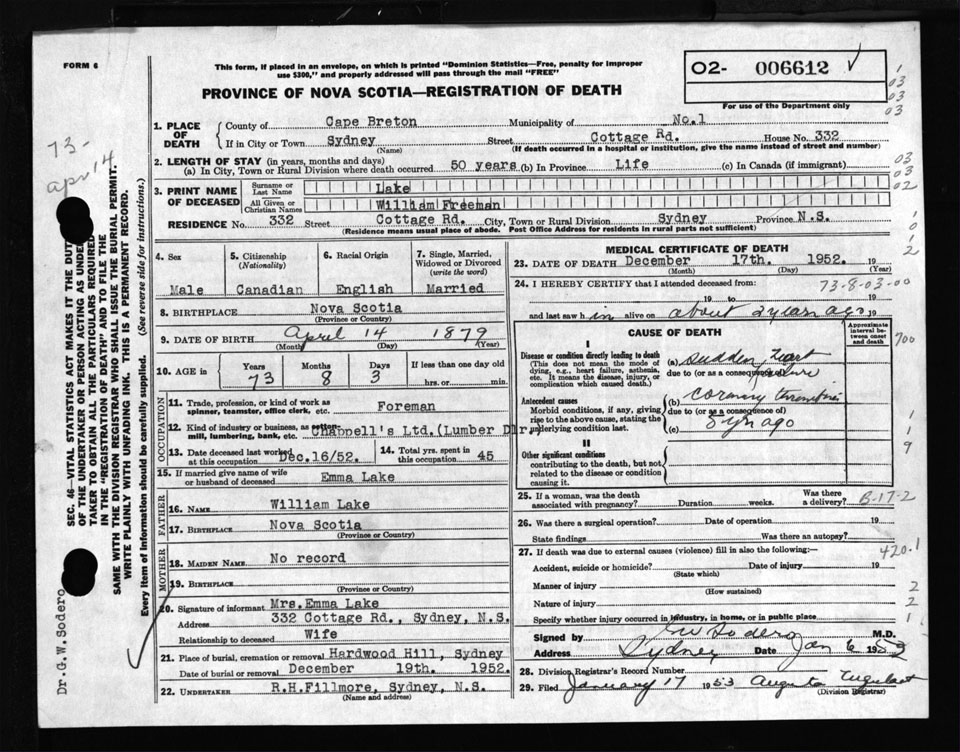 FORM 6
This form, if placed in an envelope, on which is printed "Dominion Statistics—Free, penalty for improper
use $300," and properly addressed will pass through the mail "FREE"
02- 006612
PROVINCE OF NOVA SCOTIA—REGISTRATION OF DEATH
For use of the Department only
1. PLACE OF DEATH
County of Cape Breton Municipality of No.1
If in City or Town Sydney Street Cottage Rd. House No. 332
(Name) (If death occurred in a hospital or institution, give the name instead of street and number)
2. LENGTH OF STAY (in years, months and days)
(a) In City, Town or Rural Division where death occurred 50 years (b) In Province Life (c) In Canada (if immigrant)
3. PRINT NAME OF DECEASED
Surname or Last Name Lake
All Given or Christian Names William Freeman
RESIDENCE No. 332 Street Cottage Rd. City, Town or Rural Division Sydney Province N.S.
(Residence means usual place of abode. Post Office Address for residents in rural parts not sufficient)
4. Sex Male
5. Citizenship (Nationality) Canadian
6. Racial Origin English
7. Single, Married, Widowed or Divorced (write the word) Married
8. BIRTHPLACE Nova Scotia
(Province or Country)
9. DATE OF BIRTH April 14 1879
(Month) (Day) (Year)
10. AGE in Years Months Days If less than one day old
73 8 3 hrs. or min.
OCCUPATION
11. Trade, profession, or kind of work as
spinner, teamster, office clerk, etc. Foreman
12. Kind of industry or business, as cotton
mill, lumbering, bank, etc. Chappell's Ltd.(Lumber Dlr.)
13. Date deceased last worked
at this occupation Dec.16/52.
14. Total yrs. spent in
this occupation 45
15. If married give name of wife
or husband of deceased Emma Lake
FATHER
16. NAME William Lake
17. BIRTHPLACE Nova Scotia
(Province or Country)
MOTHER
18. MAIDEN NAME No record
19. BIRTHPLACE
(Province or Country)
20. Signature of informant Mrs.Emma Lake
Address 332 Cottage Rd., Sydney, N.S.
Relationship to deceased Wife
21. Place of burial, cremation or removal Hardwood Hill, Sydney
Date of burial or removal December 19th. 1952.
22. UNDERTAKER R.H.Fillmore, Sydney, N.S.
(Name and address)
MEDICAL CERTIFICATE OF DEATH
23. DATE OF DEATH December 17th. 1952. 19
(Month) (Day) (Year)
24. I HEREBY CERTIFY that I attended deceased from: 73-8-03-00
19 to 19
and last saw h im alive on about 2 years ago 19
CAUSE OF DEATH
Approximate interval between onset and death
I
Disease or condition directly leading to death
(This does not mean the mode of
dying, e.g., heart failure, asthenia,
etc. It means the disease, injury, or
complication which caused death.)
(a) Sudden heart failure
due to (or as a consequence of)
Antecedent causes
Morbid conditions, if any, giving
rise to the above cause, stating the
underlying condition last.
(b) Coronary thrombosis
due to (or as a consequence of)
(c) 3 yrs ago
II
Other significant conditions
contributing to the death, but not
related to the disease or condition
causing it.
25. If a woman, was the death
associated with pregnancy? Duration weeks. Was there a delivery? B-17-2
26. Was there a surgical operation? Date of operation 19
State findings Was there an autopsy?
27. If death was due to external causes (violence) fill in also the following:— 420.1
Accident, suicide or homicide? Date of injury 19
(State which)
Manner of injury
(How sustained)
Nature of injury
Specify whether injury occurred in industry, in home, or in public place
Signed by GW Sodero M.D.
Address Sydney Date Jan 6 1953
28. Division Registrar's Record Number
29. Filed January 17 1953 Augusta
(Division Registrar)
73-
apr 14
SEC. 46—VITAL STATISTICS ACT MAKES IT THE DUTY
OF THE UNDERTAKER OR PERSON ACTING AS UNDER-
TAKER TO OBTAIN ALL THE PARTICULARS REQUIRED
IN THE "REGISTRATION OF DEATH" AND TO FILE THE
SAME WITH THE DIVISION REGISTRAR WHO SHALL ISSUE THE BURIAL PERMIT.
WRITE PLAINLY WITH UNFADING INK. THIS IS A PERMANENT RECORD.
Every item of information should be carefully supplied. (See reverse side for instructions.)
Dr.G.W.Sodero
1
03
03
03
03
03
02
1
0
1
2
700
1
1
9
2
2
1